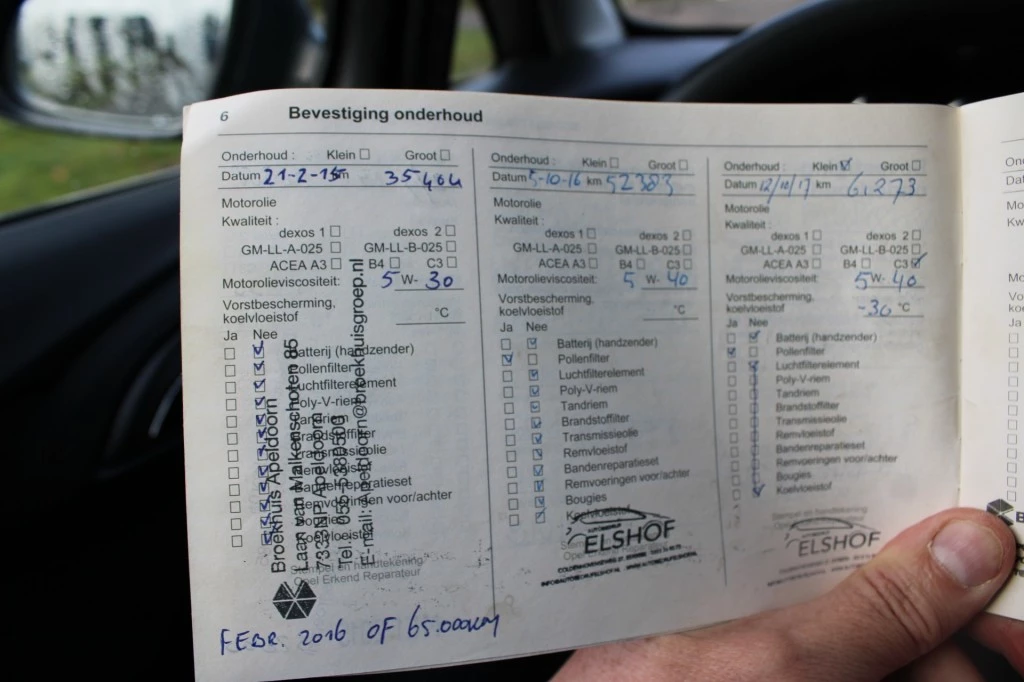 6 Bevestiging onderhoud
Onderhoud : Klein Groot
Datum 21-2-15 km 35404
Motorolie
Kwaliteit :
dexos 1 dexos 2
GM-LL-A-025 GM-LL-B-025
ACEA A3 B4 C3
Motorolieviscositeit: 5 W- 30
Vorstbescherming,
koelvloeistof °C
Ja Nee
Batterij (handzender)
Pollenfilter
Luchtfilterelement
Poly-V-riem
Tandriem
Brandstoffilter
Transmissieolie
Remvloeistof
Bandenreparatieset
Remvoeringen voor/achter
Bougies
Koelvloeistof
Stempel en handtekening
Opel Erkend Reparateur
Broekhuis Apeldoorn
Laan van Malkenschoten 85
7333NP Apeldoorn
Tel.: 055-5380300
E-mail: Apeldoorn@broekhuisgroep.nl
FEBR. 2016 OF 65.000KM
Onderhoud : Klein Groot
Datum 5-10-16 km 52383
Motorolie
Kwaliteit :
dexos 1 dexos 2
GM-LL-A-025 GM-LL-B-025
ACEA A3 B4 C3
Motorolieviscositeit: 5 W- 40
Vorstbescherming,
koelvloeistof °C
Ja Nee
Batterij (handzender)
Pollenfilter
Luchtfilterelement
Poly-V-riem
Tandriem
Brandstoffilter
Transmissieolie
Remvloeistof
Bandenreparatieset
Remvoeringen voor/achter
Bougies
Koelvloeistof
ELSHOF
Onderhoud : Klein Groot
Datum 12/10/17 km 61273
Motorolie
Kwaliteit :
dexos 1 dexos 2
GM-LL-A-025 GM-LL-B-025
ACEA A3 B4 C3
Motorolieviscositeit: 5 W- 40
Vorstbescherming,
koelvloeistof -30 °C
Ja Nee
Batterij (handzender)
Pollenfilter
Luchtfilterelement
Poly-V-riem
Tandriem
Brandstoffilter
Transmissieolie
Remvloeistof
Bandenreparatieset
Remvoeringen voor/achter
Bougies
Koelvloeistof
Stempel en handtekening
ELSHOF